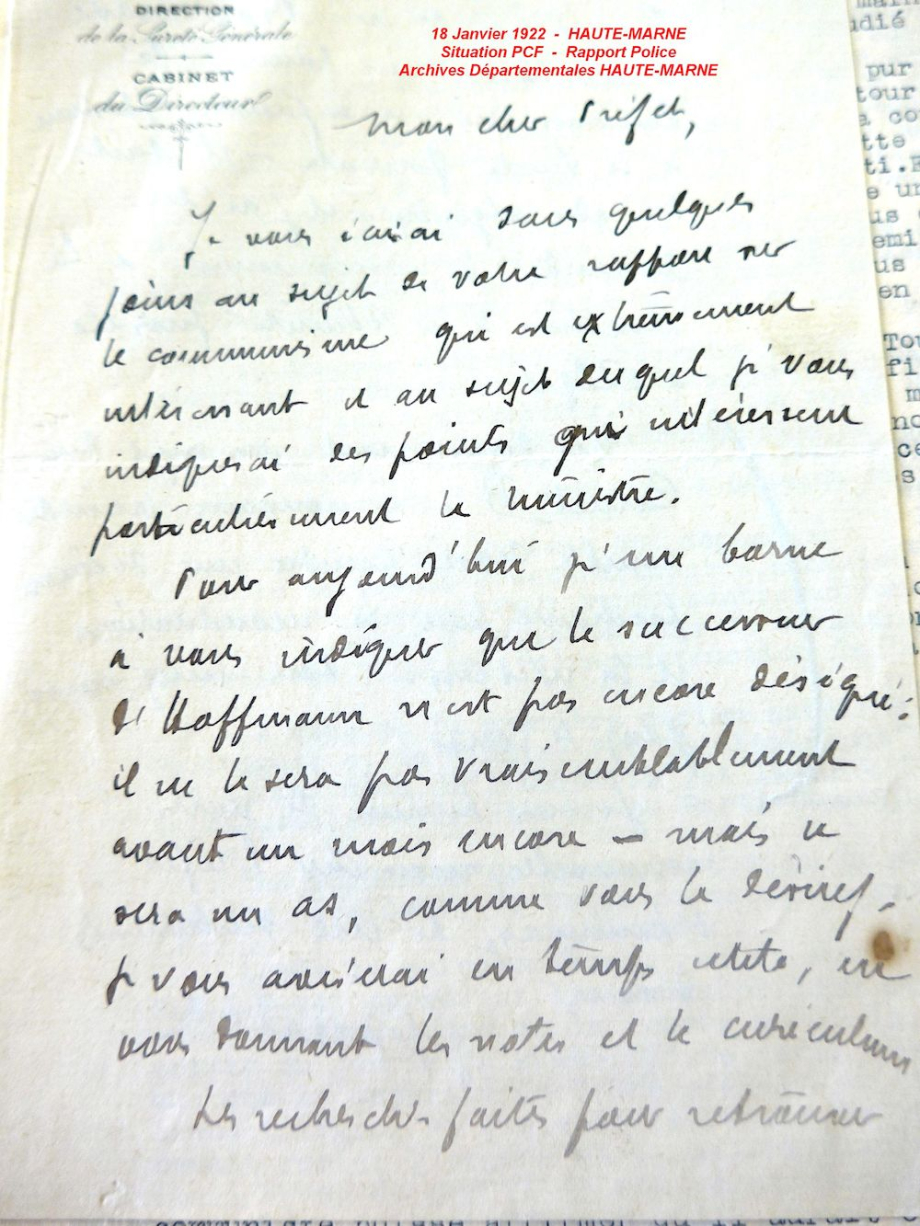 DIRECTION
de la Sureté Générale
CABINET
du Directeur
18 Janvier 1922 - HAUTE-MARNE
Situation PCF - Rapport Police
Archives Départementales HAUTE-MARNE
Mon cher Préfet,
Je vous écrirai dans quelques
jours au sujet de votre rapport sur
le communisme qui est extrêmement
intéressant et au sujet duquel je vous
indiquerai des points qui intéressent
particulièrement le ministre.
Pour aujourd'hui je me borne
à vous indiquer que le successeur
de Hoffmann n'est pas encore désigné :
il ne le sera pas vraisemblablement
avant un mois encore — mais ce
sera un as, comme vous le désirez.
Je vous aviserai en temps utile, en
vous donnant les notes et le curriculum
Les recherches faites pour retrouver